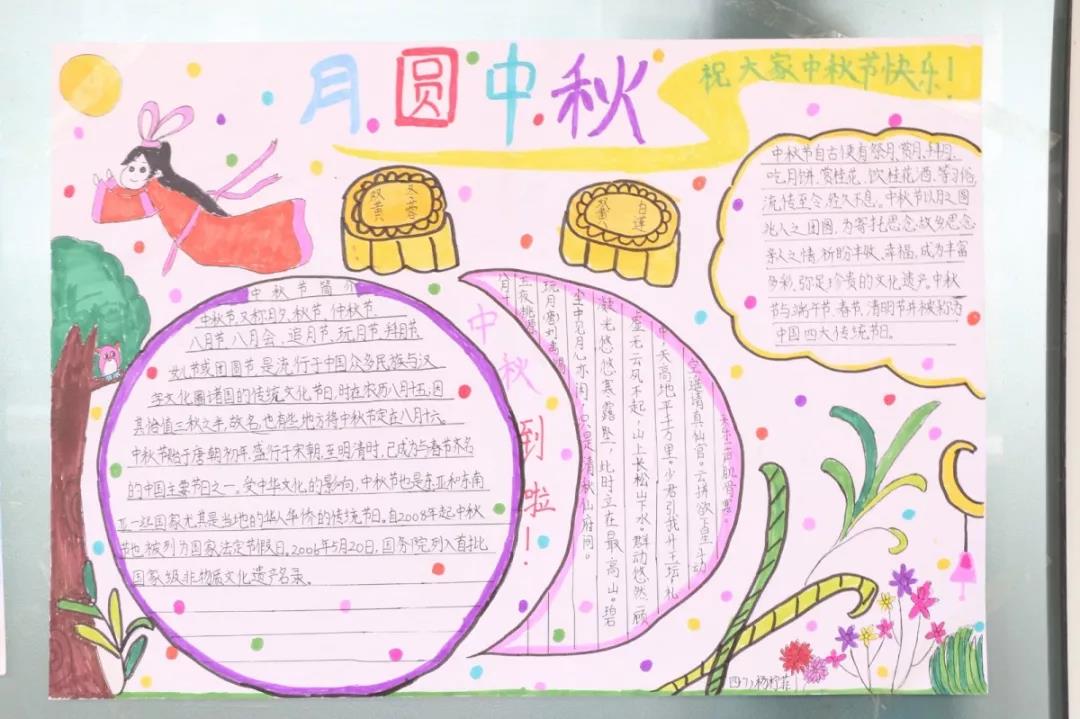 月圆中秋
祝大家中秋节快乐!
双黄
冬蓉
双黄
白莲
中秋节自古便有祭月、赏月、拜月、
吃月饼、赏桂花、饮桂花酒等习俗,
流传至今,经久不息。中秋节以月之圆
兆人之团圆,为寄托思念故乡,思念
亲人之情,祈盼丰收、幸福,成为丰富
多彩、弥足珍贵的文化遗产。中秋
节与端午节、春节、清明节并被称为
中国四大传统节日。
中秋节简介
中秋节又称月夕、秋节、仲秋节、
八月节、八月会、追月节、玩月节、拜月节、
女儿节或团圆节,是流行于中国众多民族与汉
字文化圈诸国的传统文化节日,时在农历八月十五;因
其恰值三秋之半,故名,也有些地方将中秋节定在八月十六。
中秋节始于唐朝初年,盛行于宋朝,至明清时,已成为与春节齐名
的中国主要节日之一。受中华文化的影响,中秋节也是东亚和东南
亚一些国家尤其是当地的华人华侨的传统节日。自2008年起中秋
节也被列为国家法定节假日。2006年5月20日,国务院列入首批
国家级非物质文化遗产名录。
中秋到啦!
八月十
五夜桃源
玩月
尘中见月心亦闲,只是清秋仙府间。
凝光悠悠寒露坠,此时立在最高山。碧
虚无云风不起,山上长松山下水。群动悠然一顾
中,天高地平千万里。少君引我升玉坛,礼
空遥请真仙官。云拼欲下星斗动
天乐一声肌骨寒。
四(1)